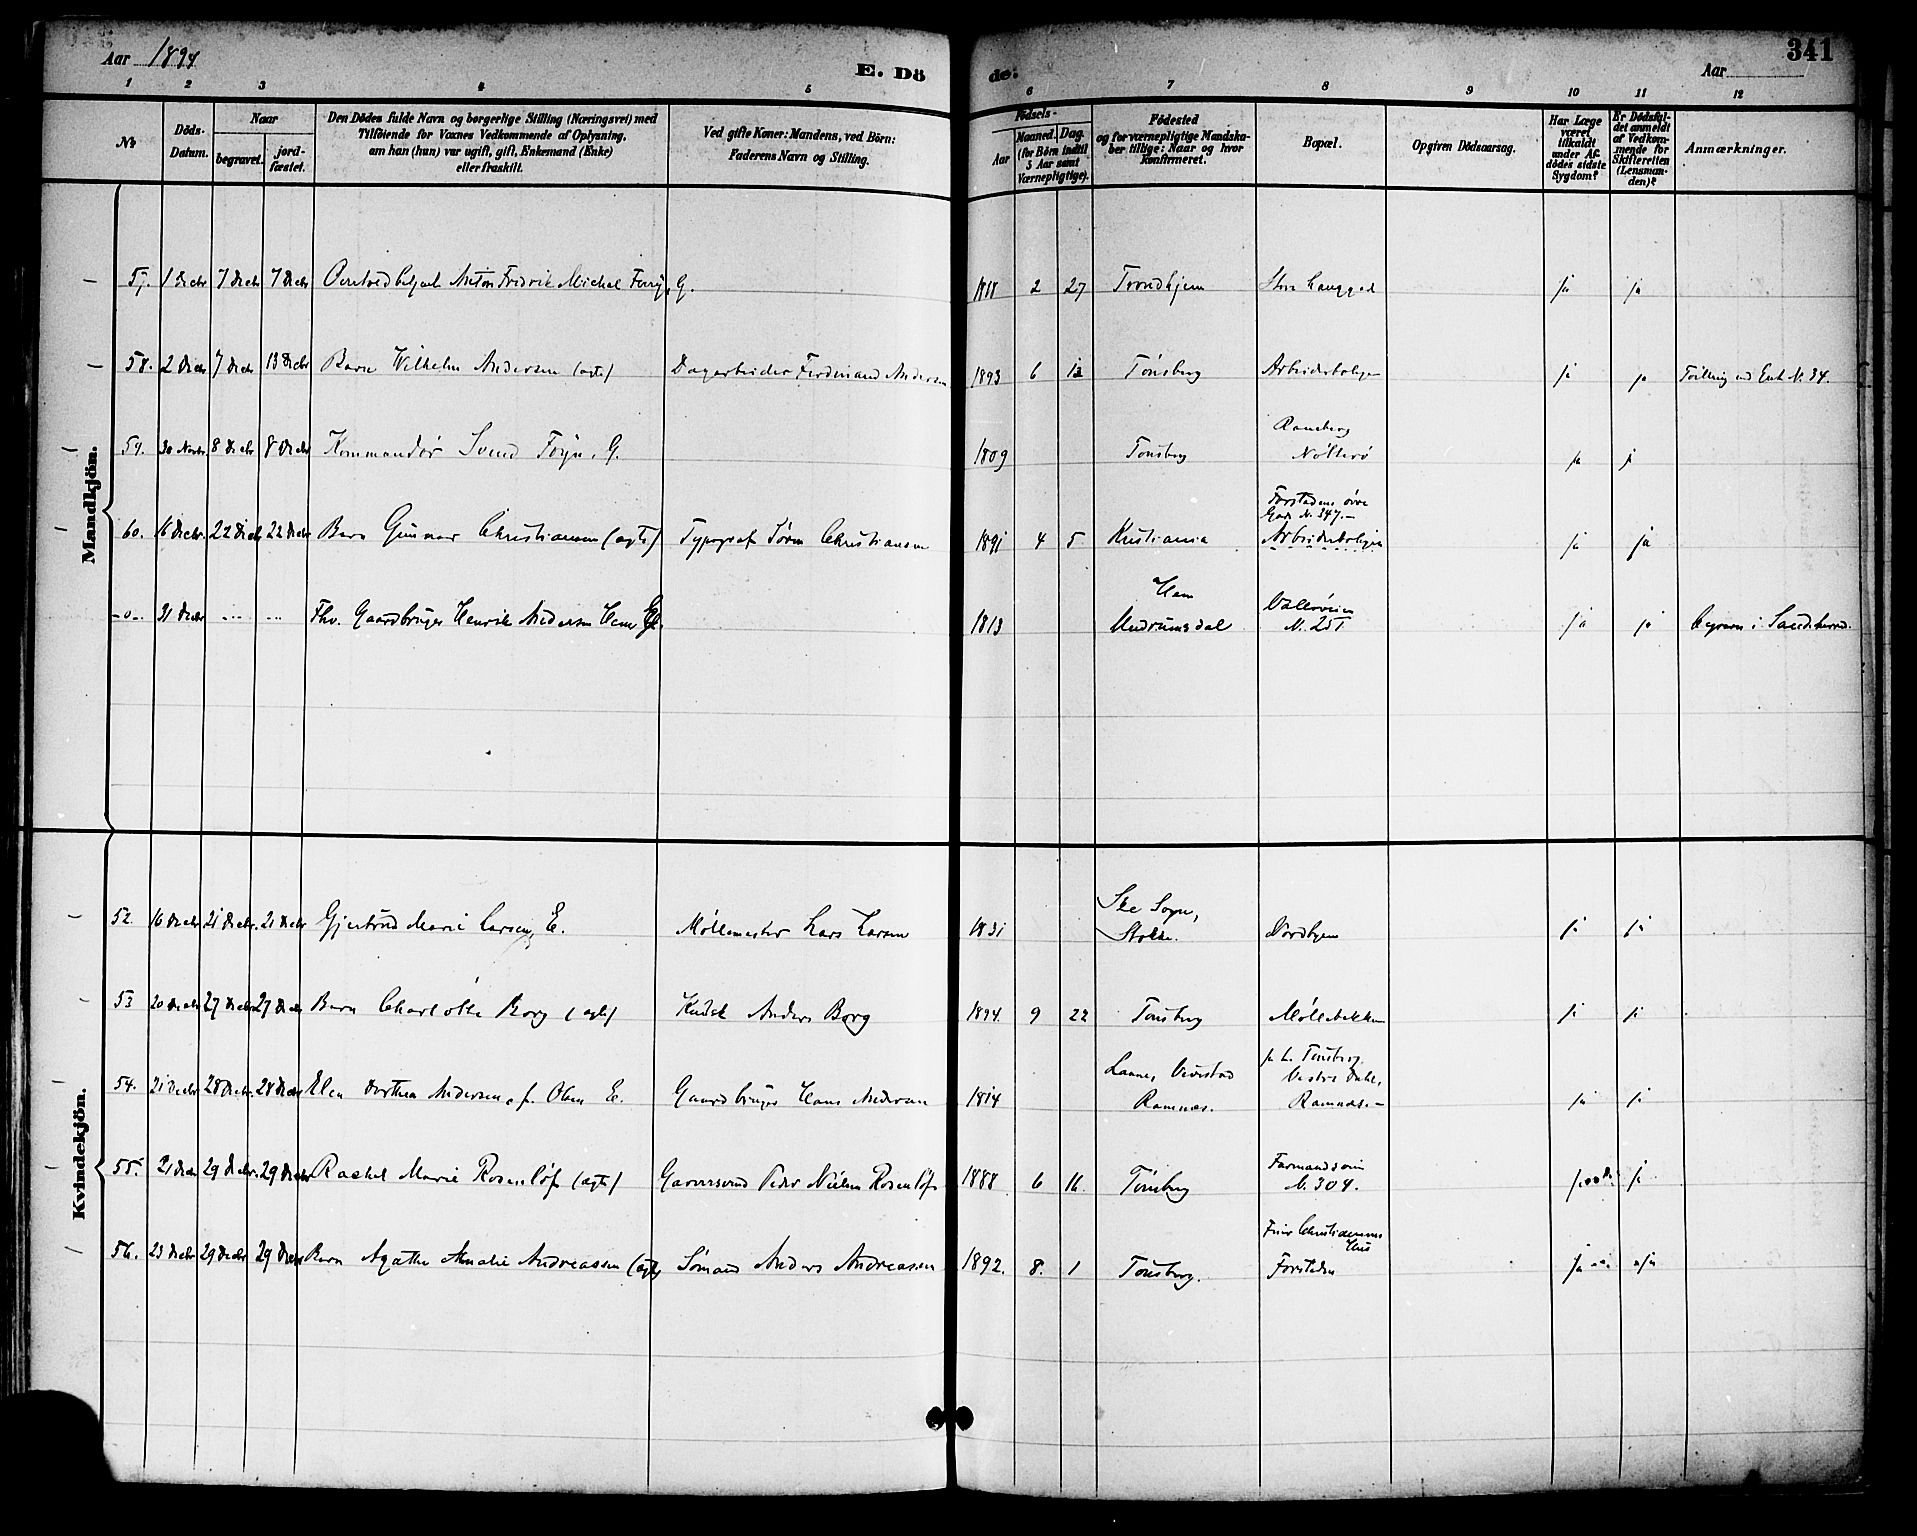 Aar 1894
E. Dö
de.
341
Aar
1 2 3 4 5 6 7 8 9 10 11 12
No
Döds-Datum.
Naar
begravet.
jord-fæstet.
Den Dödes fulde Navn og borgerlige Stilling (Næringsvei) med
Tilföiende for Voxnes Vedkommende af Oplysning,
om han (hun) var ugift, gift, Enkemand (Enke)
eller fraskilt.
Ved gifte Koner: Mandens, ved Börn:
Faderens Navn og Stilling.
Födsels-
Aar
Maaned. Dag.
(for Börn indtil
3 Aar samt
Værnepligtige).
Födested
og for værnepligtige Mandska-
ber tillige: Naar og hvor
Konfirmeret.
Bopæl.
Opgiven Dödsaarsag.
Har Læge
været
tilkaldt
under Af-
dödes sidste
Sygdom?
Er Dödsfal-
det anmeldt
af Vedkom-
mende for
Skifteretten
(Lensman-
den)?
Anmærkninger.
Mandkjön.
57. 1 Decbr 7 Decbr 7 Decbr Anton Fredrik Michal G. 1818 2 27 Trondhjem Store Langgad ja ja
58. 2 Decbr 7 Decbr 13 Decbr Barn Wilhelm Andersen (ægte) Dagarbeider Ferdinand Andersen 1893 6 Tönsberg Arbeiderboligen ja ja Tvilling ved Enk N. 34.
59. 30 Novbr. 8 Decbr 8 Decbr Kommandör Svend Föyn. G. 1809 Tönsberg Ramberg
Nötterö ja ja
60. 16 Decbr. 22 Decbr 22 Decbr Barn Gunnar Christiansen (ægte) Typograf Sören Christiansen 1891 4 5 Kristiania Forstadens övre
Gade N. 347.-
Arbeiderboligen ja ja
-0- 31 Decbr ... ... Fhv. Gaardbruger Henrik Andersen Hem G. 1813 Hem
Undrumsdal
N. 251 ja ja Begraven i Sandeherred.
Kvindekjön.
52. 16 Decbr 21 Decbr. 21 Decbr Gjertrud Marie Larsen, E. Möllemester Lars Larsen 1831 Ske Sogn,
Stokke. Nordbyen ja ja
53 20 Decbr 27 Decbr 27 Decbr Barn Charlotte Borg (ægte) Kusk Anders Borg 1894. 9 22 Tönsberg Möllebakken ja ja
54. 21 Decbr 28 Decbr. 28 Decbr Elen Dorthea Andersen f. Olsen E. Gaardbruger Hans Andersen 1814
Ramnæs. p. t. Tönsberg.
Vestre
Ramnæs.- ja ja
55. 21 Decbr 29 Decbr. 29 Decbr Rachel Marie Rosenlöf (ægte) Garversvend Peder Nielsen Rosenlöf 1888 6 16. Tönsberg Farmandsveien
N. 304. ja ja
56. 23 Decbr 29 Decbr 29 Decbr Barn Agathe Amalie Andreassen (ægte) Sömand Anders Andreassen 1892. 8. 1 Tönsberg.
Hus
Forstaden ja ja